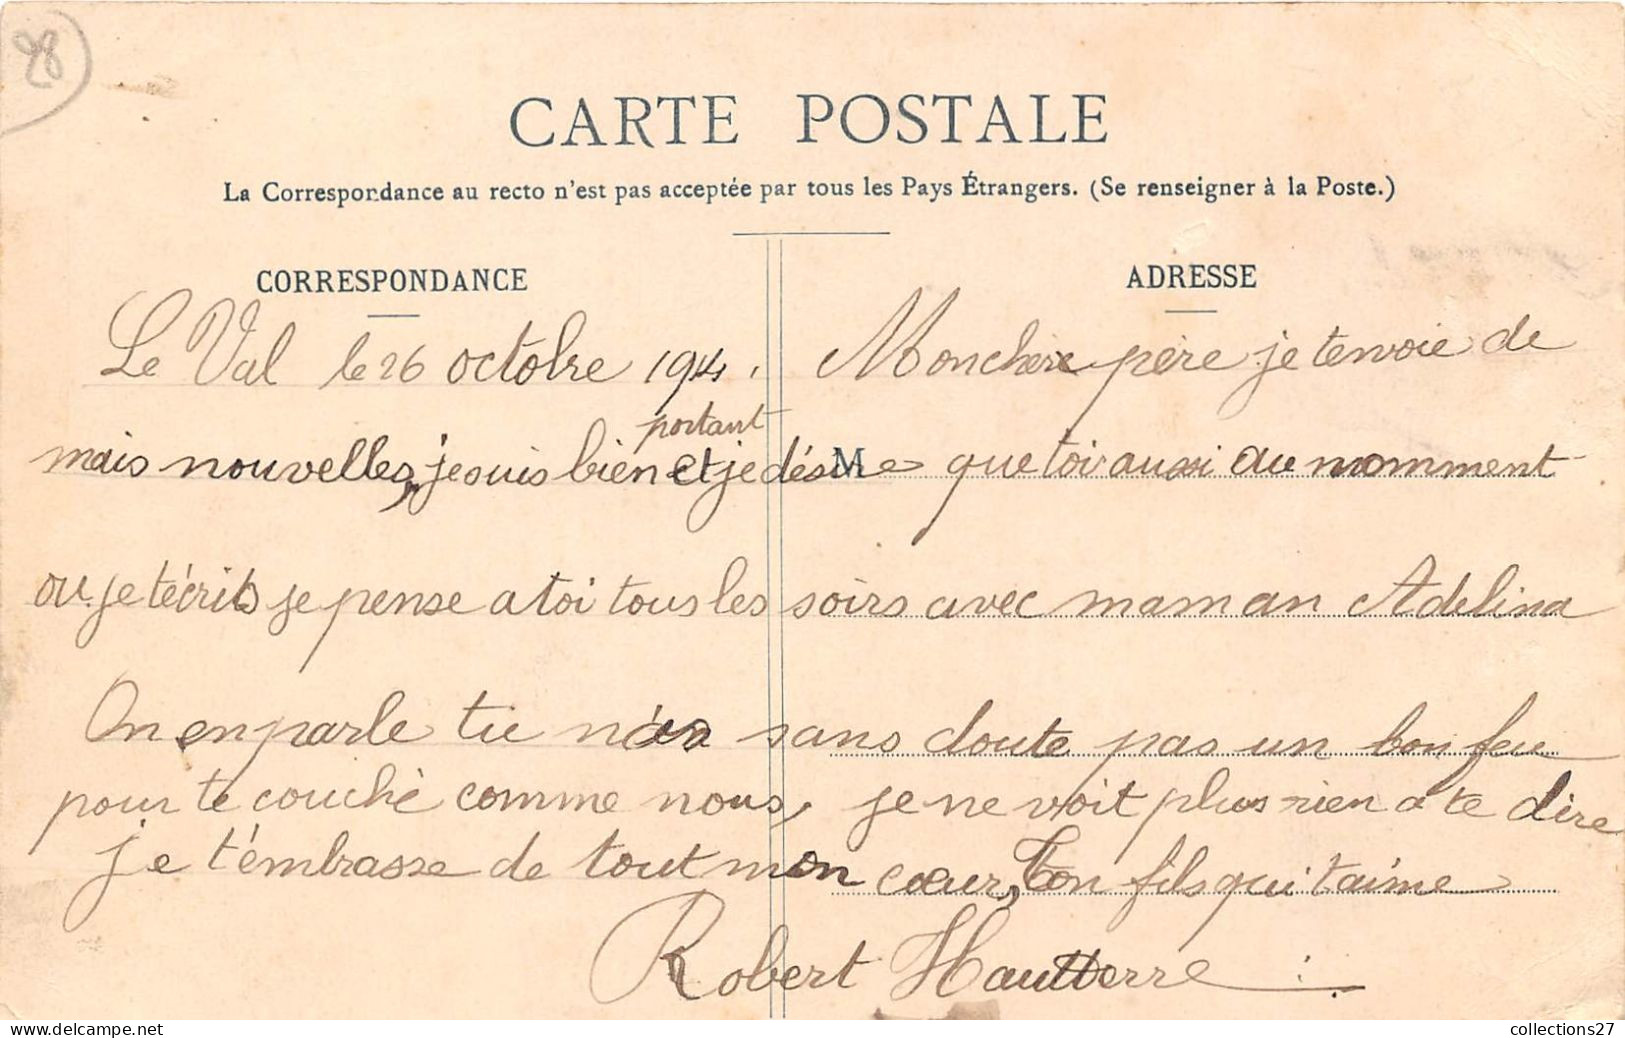 28
CARTE POSTALE
La Correspondance au recto n'est pas acceptée par tous les Pays Étrangers. (Se renseigner à la Poste.)
CORRESPONDANCE
ADRESSE
Le Val le 26 octobre 1914. Mon chère père je tenvoie de
portant
mais nouvelles, je suis bien et je désire que toi aussi au nomment
M
ou je técrits je pense a toi tous les soirs avec maman Adelina
On en parle tu n'as sans doute pas un bon feu
pour te couché comme nous, je ne voit plus rien a te dire
je t'émbrasse de tout mon cœur, Ton fils qui t'aime
Robert Hautterre
collections27